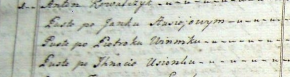 Anton Kowalczyk
Puste po Janku Ausiejowym
Puste po Pietraku Winniku
Puste po Ihnacie Usionku